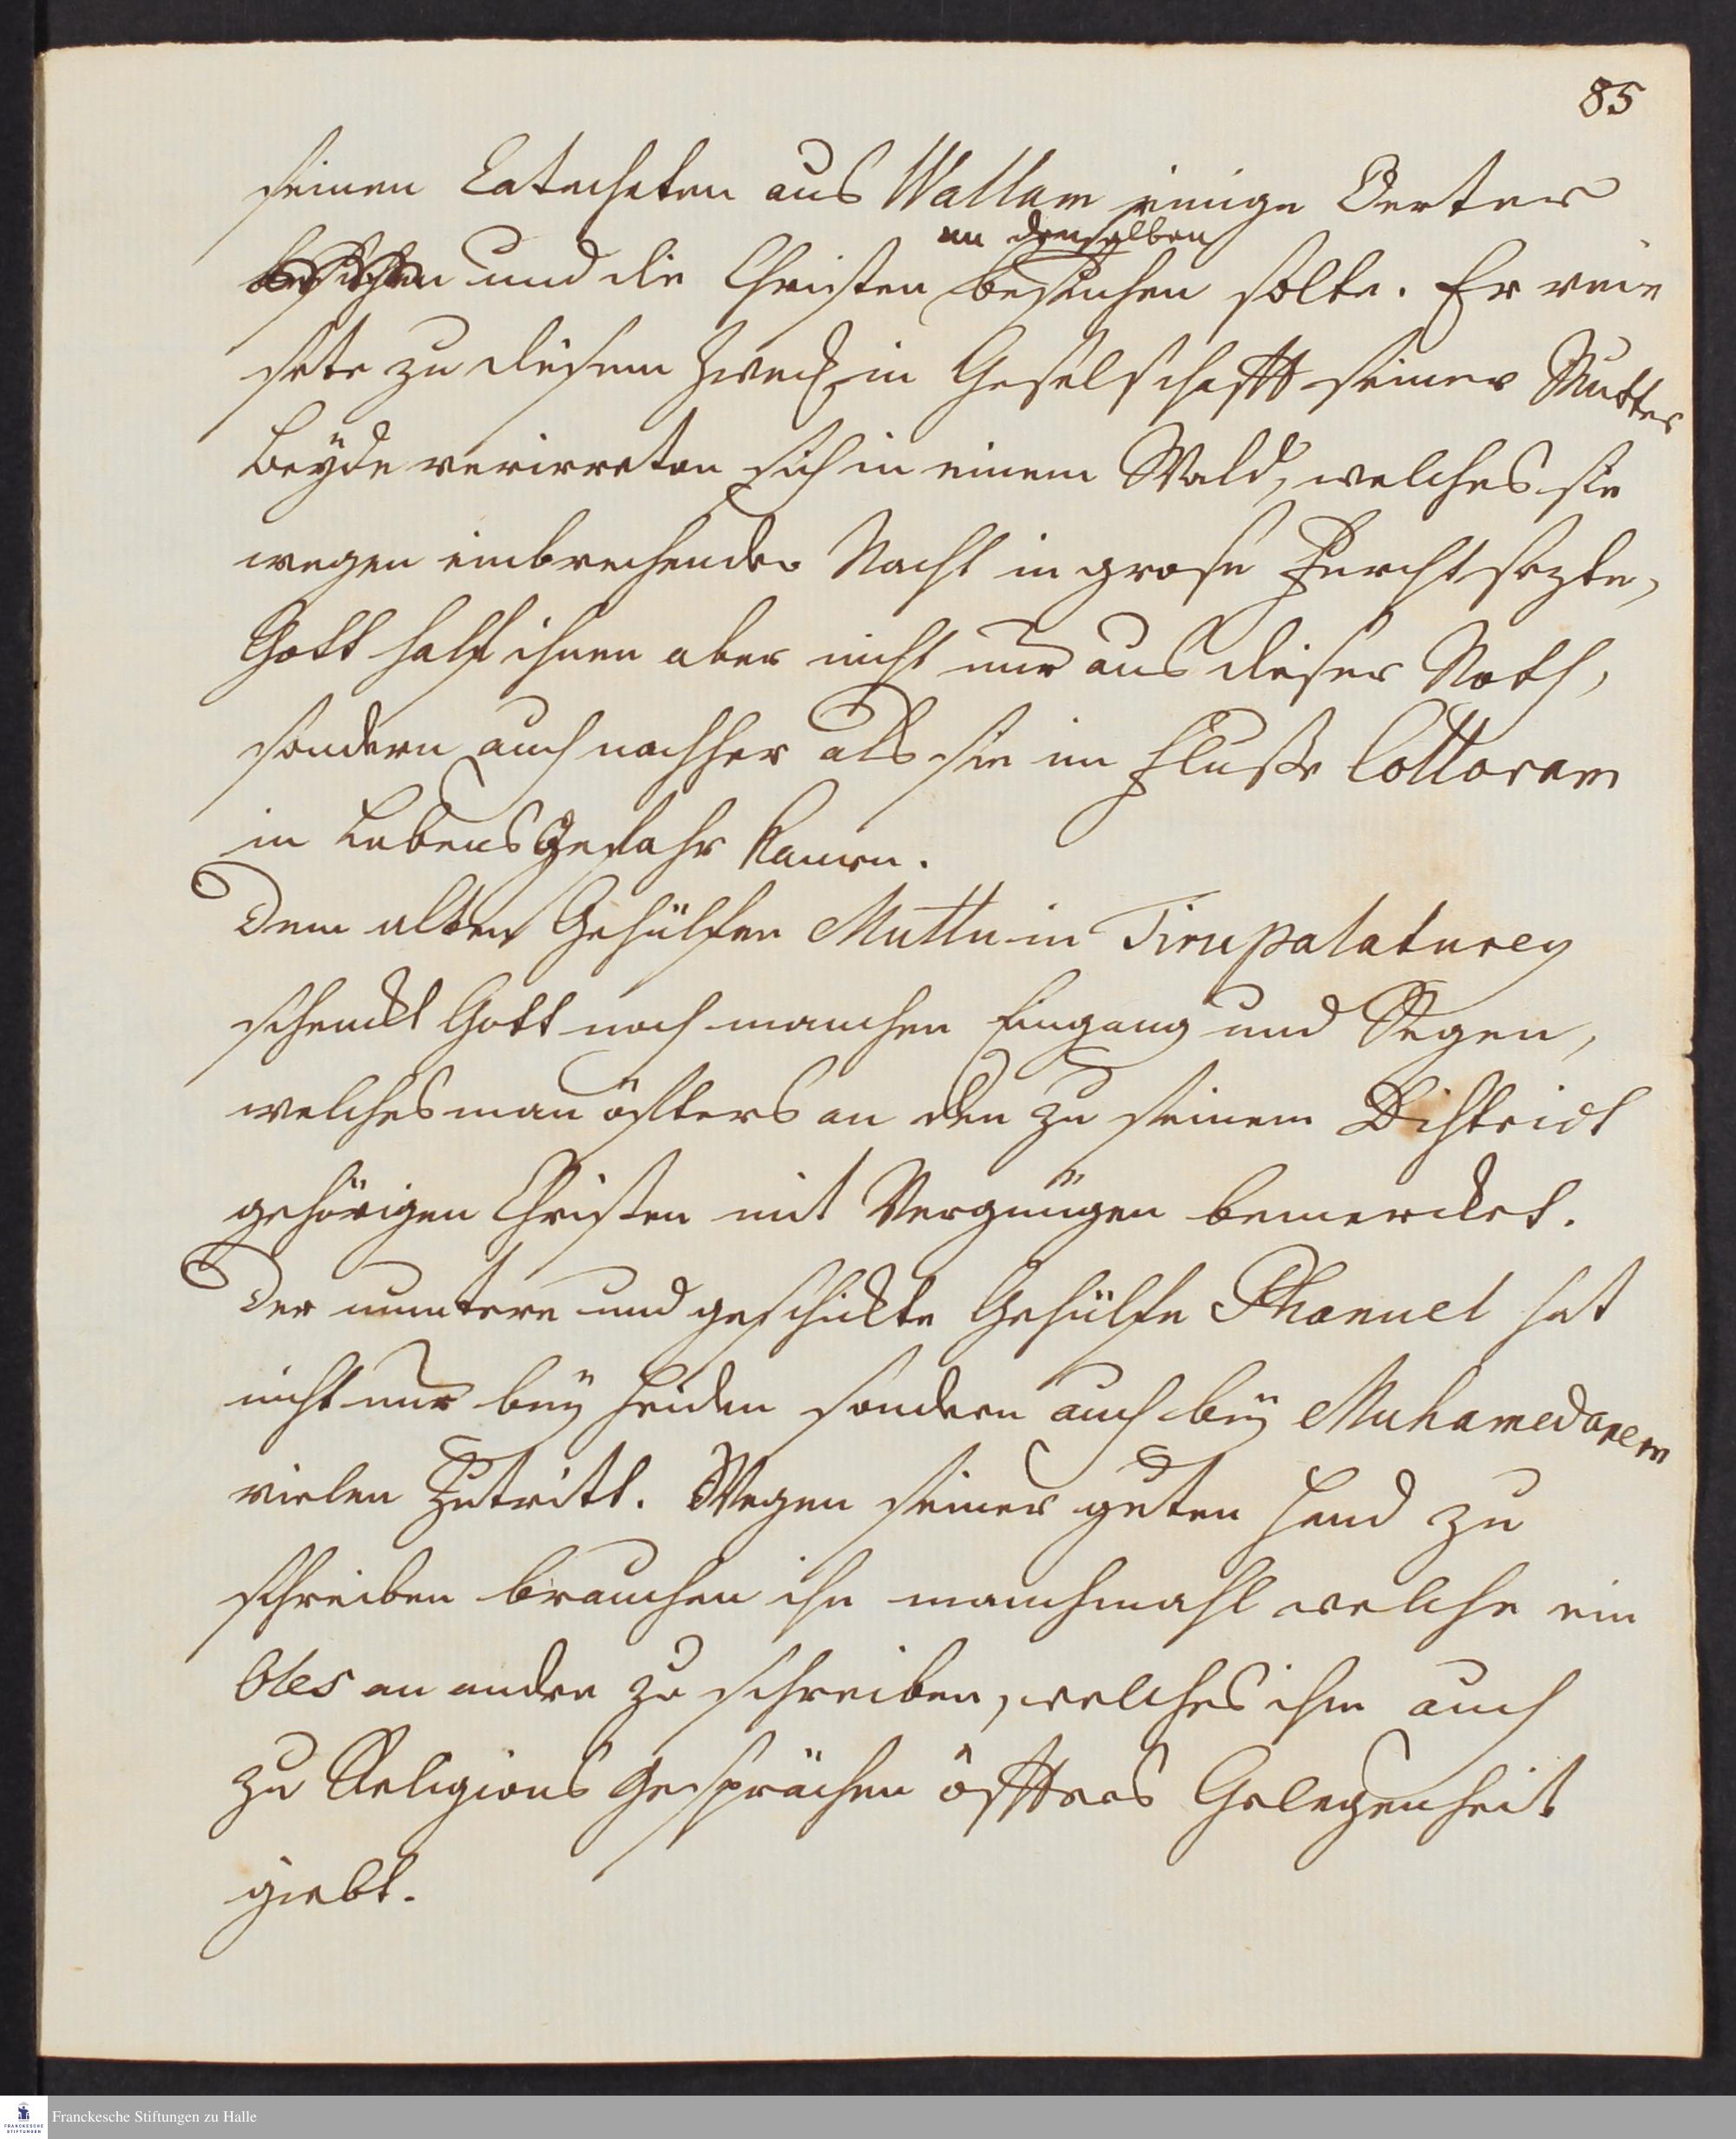 85
seinen Catecheten aus Wallam einige Oerter
besuchen und die Christen an denselben besuchen solte. Er rei-
sete zu diesem Zweck in Geselschafft seiner Mutter
beÿde verirreten sich in einem Wald, welches sie
wegen einbrechender Nacht in grose Furcht sezte,
Gott half ihnen aber nicht nur aus dieser Noth,
sondern auch nachher als sie im Flusse Colloram
in Lebens Gefahr kamen.
Dem alten Gehülfen Muttu in Tirupalaturey
schenckt Gott noch manchen Eingang und Segen,
welches man öfters an den zu seinem District
gehörigen Christen mit Vergnügen bemercket.
Der muntere und geschickte Gehülfe Phanuel hat
nicht nur beÿ Heiden sondern auch beÿ Muhamedanern
vielen Zutritt. Wegen seiner guten Hand zu
schreiben brauchen ihn manchmahl welche ein
Oles an andre zu schreiben, welches ihm auch
zu Religions Gesprächen öffters Gelegenheit
giebt.
Franckesche Stiftungen zu Halle
FRANCKESCHE
STIFTUNGEN